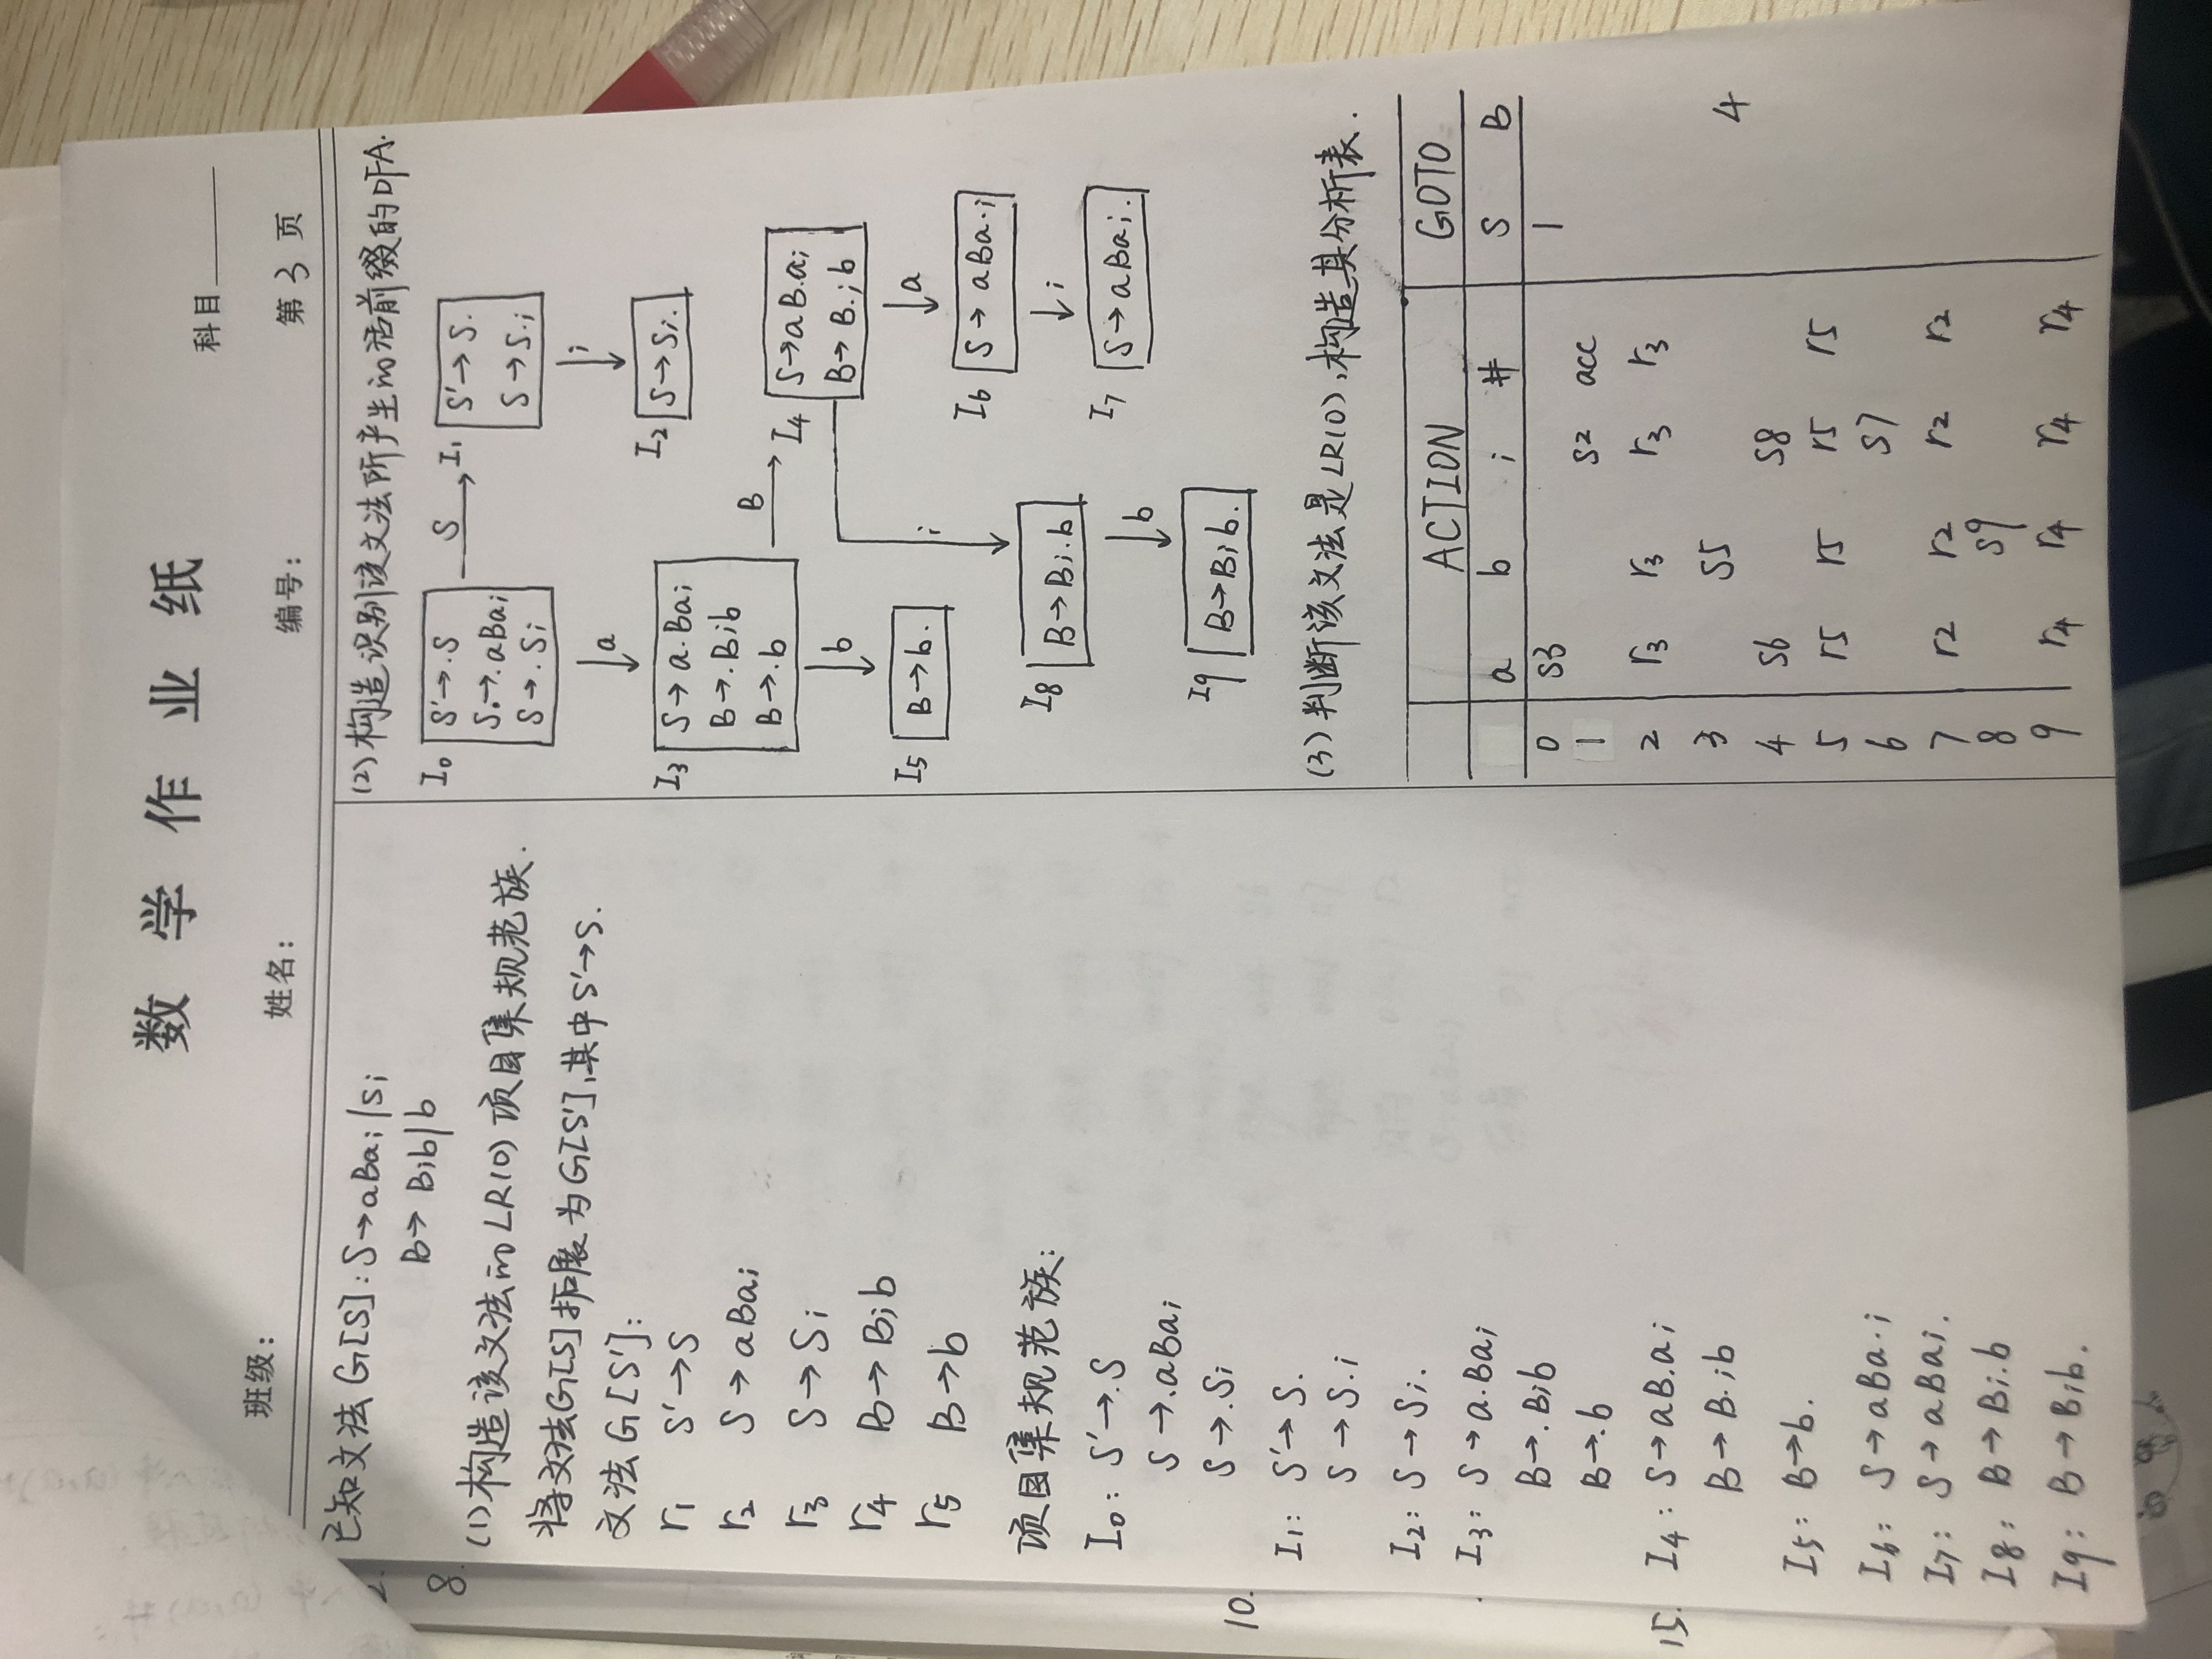 数学作业纸
科目
班级:
姓名:
编号:
第3页
2.
8.
10.
15.
已知文法G[S]:S→aBai|Si
B→Bib|b
(1)构造该文法的LR(0)项目集规范族.
将文法G[S]拓展为G[S'],其中S'→S.
文法G[S']:
r1 S'→S
r2 S→aBai
r3 S→Si
r4 B→Bib
r5 B→b
项目集规范族:
I0: S'→.S
S→.aBai
S→.Si
I1: S'→S.
S→S.i
I2: S→Si.
I3: S→a.Bai
B→.Bib
B→.b
I4: S→aB.ai
B→B.ib
I5: B→b.
I6: S→aBa.i
I7: S→aBai.
I8: B→Bi.b
I9: B→Bib.
(2)构造识别该文法所产生的活前缀的DFA.
I0 S'→.S S I1 S'→S.
S.→.aBai S→S.i
S→.Si
a i
I3 S→a.Bai I2 S→Si.
B→.Bib
B→.b B I4 S→aB.ai
b B→B.ib
I5 B→b. i a
I6 S→aBa.i
I8 B→Bi.b i
I7 S→aBai.
b
I9 B→Bib.
(3)判断该文法是LR(0),构造其分析表.
ACTION GOTO
a b i # S B
0 S3 1
1 S2 acc
2 r3 r3 r3 r3
3 S5 4
4 S6 S8
5 r5 r5 r5 r5
6 S7
7 r2 r2 r2 r2
8 S9
9 r4 r4 r4 r4